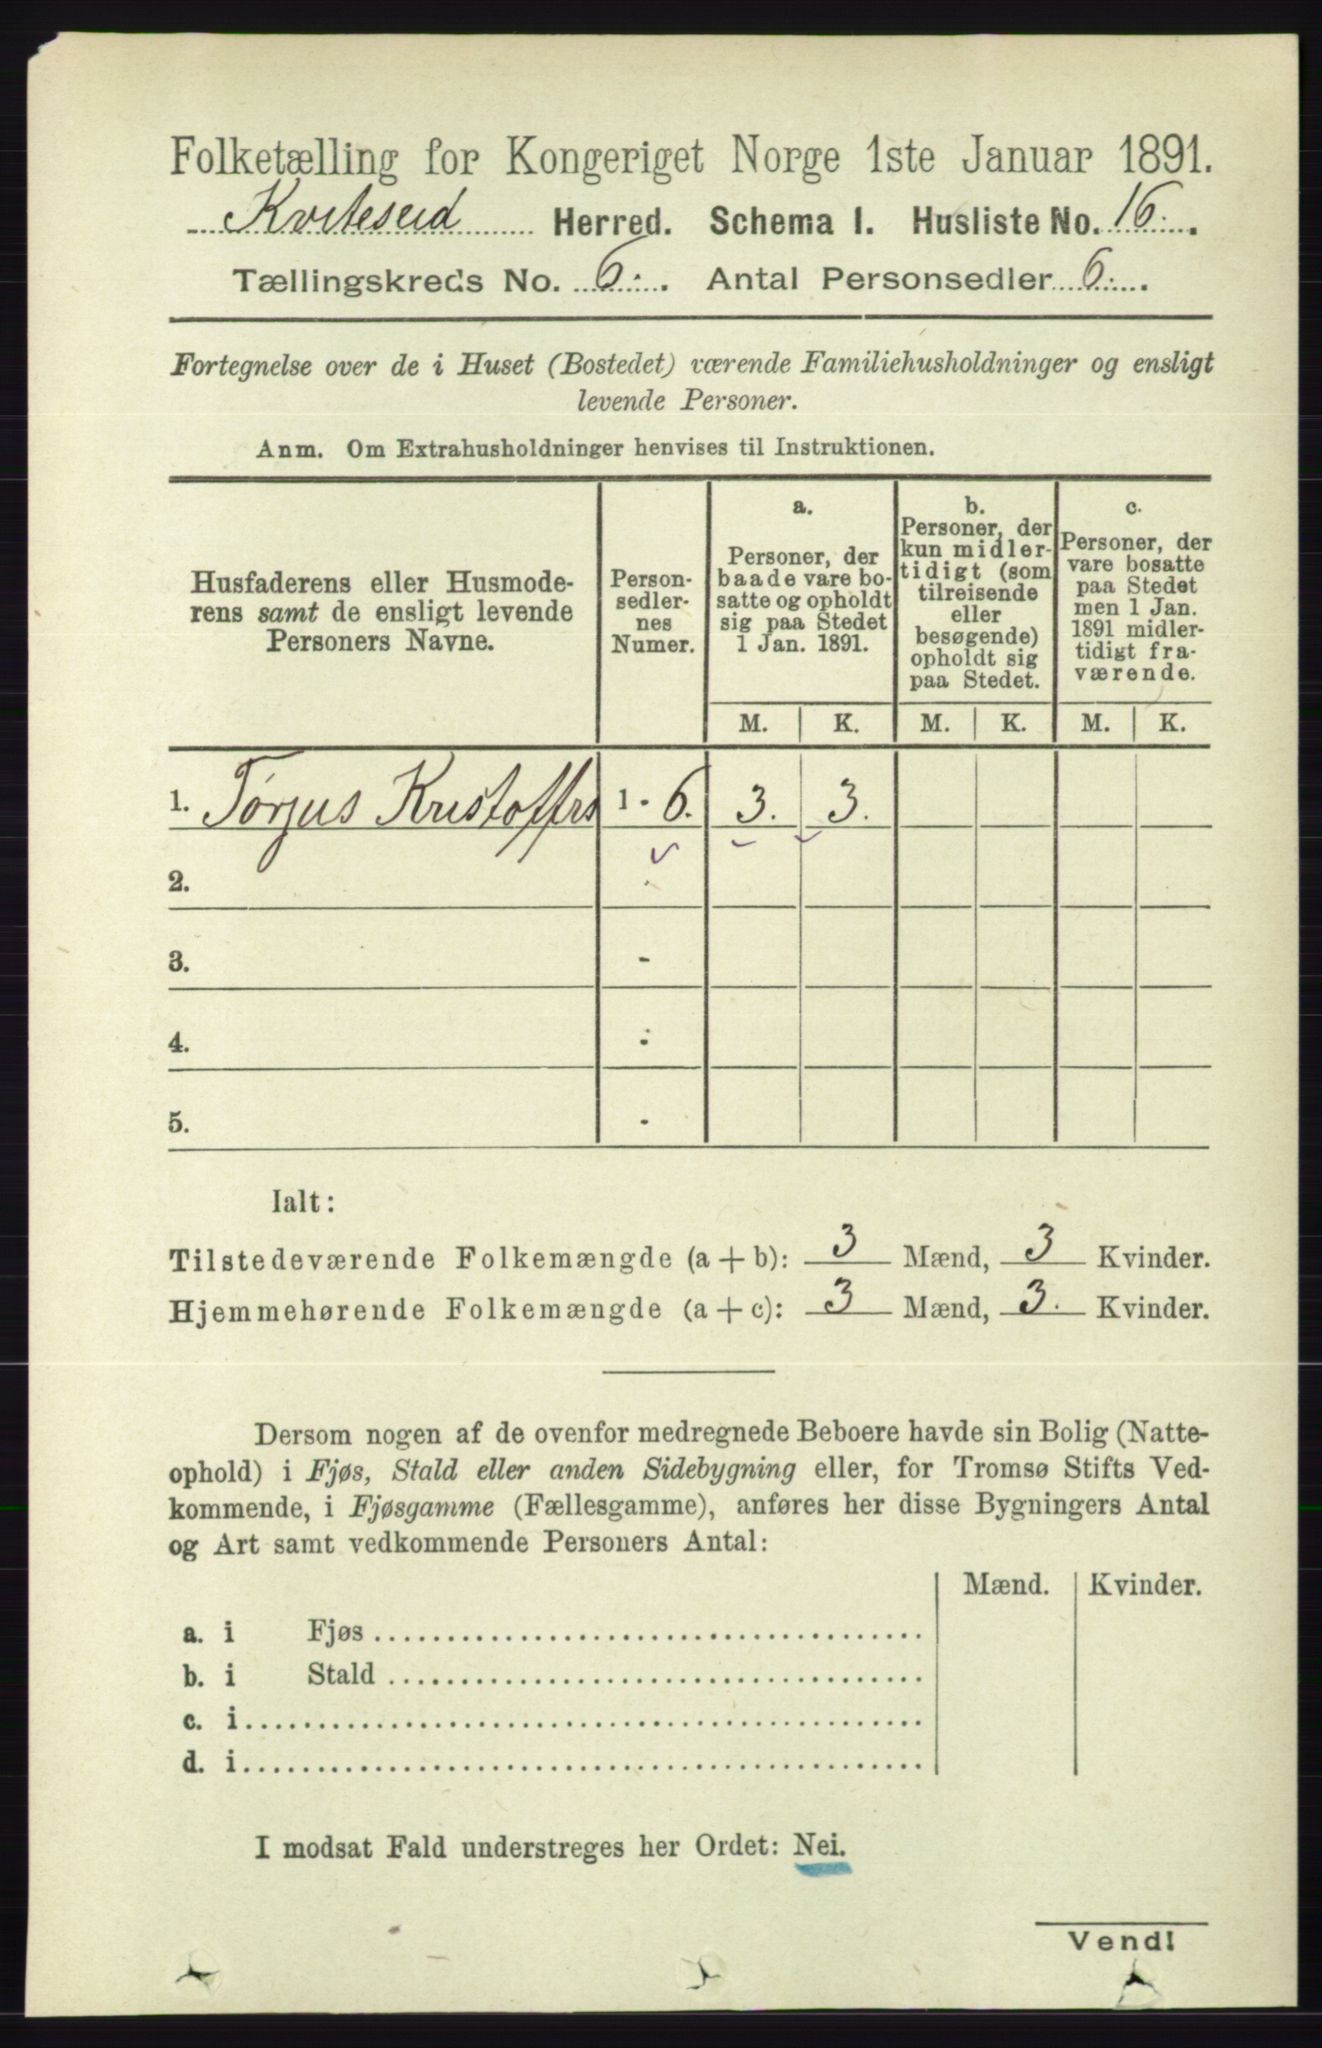 Folketælling for Kongeriget Norge 1ste Januar 1891.
Kviteseid Herred. Schema I. Husliste No. 16.
Tællingskreds No. 6. Antal Personsedler 6.
Fortegnelse over de i Huset (Bostedet) værende Familiehusholdninger og ensligt
levende Personer.
Anm. Om Extrahusholdninger henvises til Instruktionen.
Husfaderens eller Husmode-
rens samt de ensligt levende
Personers Navne.
Person-
sedler-
nes
Numer.
a.
Personer, der
baade vare bo-
satte og opholdt
sig paa Stedet
1 Jan. 1891.
b.
Personer, der
kun midler-
tidigt (som
tilreisende
eller
besøgende)
opholdt sig
paa Stedet.
c.
Personer, der
vare bosatte
paa Stedet
men 1 Jan.
1891 midler-
tidigt fra-
værende.
M. K. M. K. M. K.
1. Tørjus Kristoffrs 1 - 6. 3. 3.
2.
3. -
4. -
5. -
Ialt:
Tilstedeværende Folkemængde (a + b): 3 Mænd, 3 Kvinder.
Hjemmehørende Folkemængde (a + c): 3 Mænd, 3. Kvinder.
Dersom nogen af de ovenfor medregnede Beboere havde sin Bolig (Natte-
ophold) i Fjøs, Stald eller anden Sidebygning eller, for Tromsø Stifts Ved-
kommende, i Fjøsgamme (Fællesgamme), anføres her disse Bygningers Antal
og Art samt vedkommende Personers Antal:
Mænd. Kvinder.
a. i Fjøs
b. i Stald
c. i
d. i
I modsat Fald understreges her Ordet: Nei.
Vend!